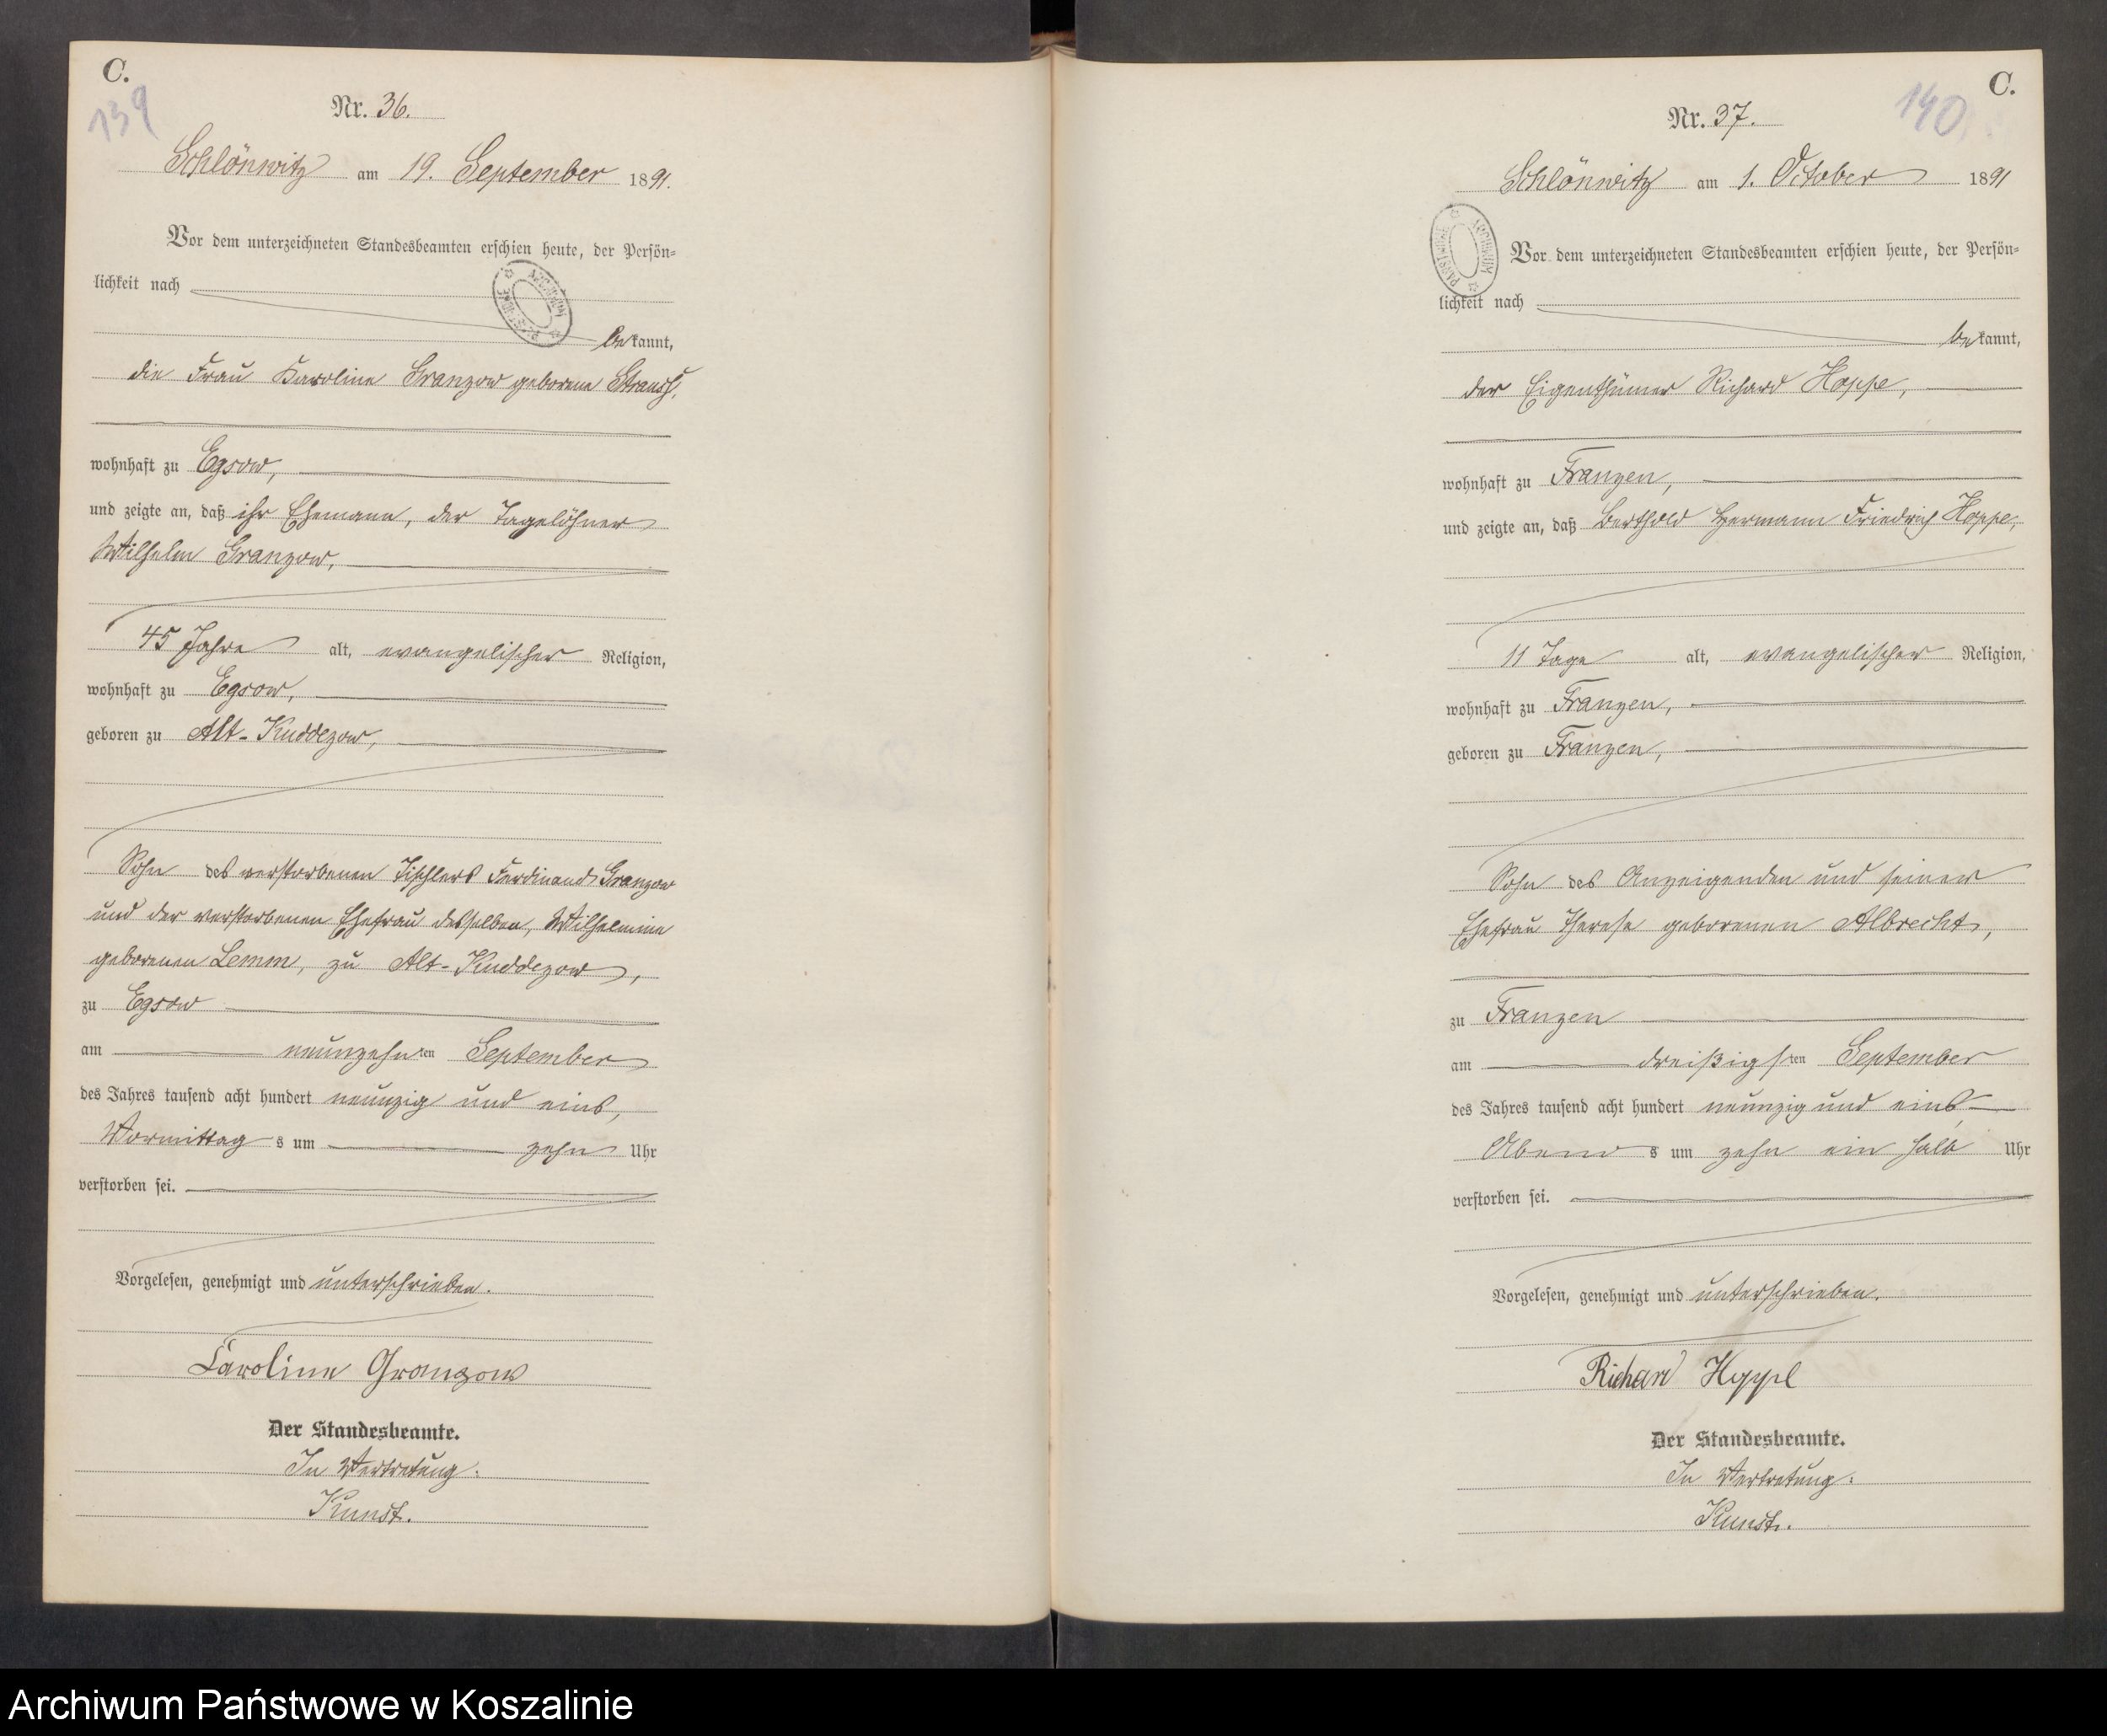 C.
139
Nr. 36.
Schlönwitz am 19. September 1891.
Vor dem unterzeichneten Standesbeamten erschien heute, der Persön-
lichkeit nach
bekannt,
die Frau Karoline Granzow geborene Strauß,
wohnhaft zu Egsow,
und zeigte an, daß ihr Ehemann, der Tagelöhner
Wilhelm Granzow,
45 Jahre alt, evangelischer Religion,
wohnhaft zu Egsow,
geboren zu Alt-Kuddezow,
Sohn des verstorbenen Tischlers Ferdinand Granzow
und der verstorbenen Ehefrau desselben, Wilhelmine
geborenen Lemm, zu Alt-Kuddezow,
zu Egsow
am neunzehnten September
des Jahres tausend acht hundert neunzig und eins,
Vormittags um zehn Uhr
verstorben sei.
Vorgelesen, genehmigt und unterschrieben.
Caroline Granzow
Der Standesbeamte.
In Vertretung:
Kunst.
C.
140
Nr. 37.
Schlönwitz am 1. October 1891
ARCHIWUM PAŃSTWOWE
Vor dem unterzeichneten Standesbeamten erschien heute, der Persön-
lichkeit nach
bekannt,
der Eigenthümer Richard Hoppe,
wohnhaft zu Franzen,
und zeigte an, daß Berthold Hermann Friedrich Hoppe,
11 Tage alt, evangelischer Religion,
wohnhaft zu Franzen,
geboren zu Franzen,
Sohn des Anzeigenden und seiner
Ehefrau Therese geborenen Albrecht,
zu Franzen
am dreißigsten September
des Jahres tausend acht hundert neunzig und eins,
Abends um zehn ein halb Uhr
verstorben sei.
Vorgelesen, genehmigt und unterschrieben.
Richard Hoppe
Der Standesbeamte.
In Vertretung:
Kunst.
Archiwum Państwowe w Koszalinie